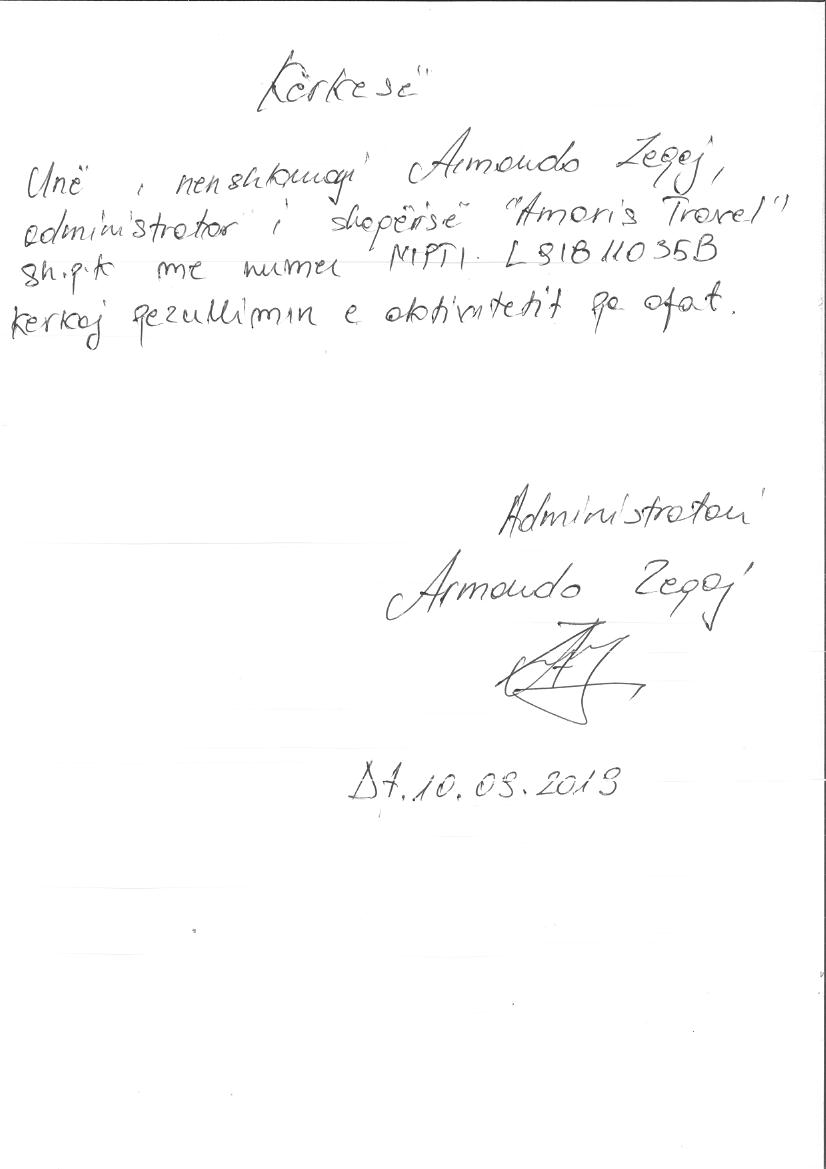 Kërkesë
Unë i nenshkruari Armando Zeqaj,
administrator i shoqërisë "Amoris Travel"
sh.p.k me numer NIPTI L91811035B
kerkoj pezullimin e aktivitetit pa afat.
Administratori
Armando Zeqaj
Dt.10.09.2019